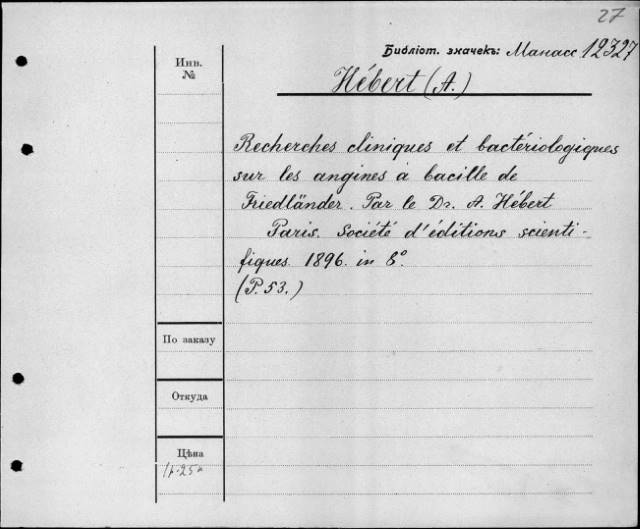 27
Библіот. значекъ: Манасс 12327
Инв.
№
Hébert (A.)
Recherches cliniques et bactériologiques
sur les angines à bacille de
Friedländer. Par le Dr. A. Hébert
Paris. Société d'éditions scienti-
fiques. 1896. in 8°.
(P. 53.)
По заказу
Откуда
Цѣна